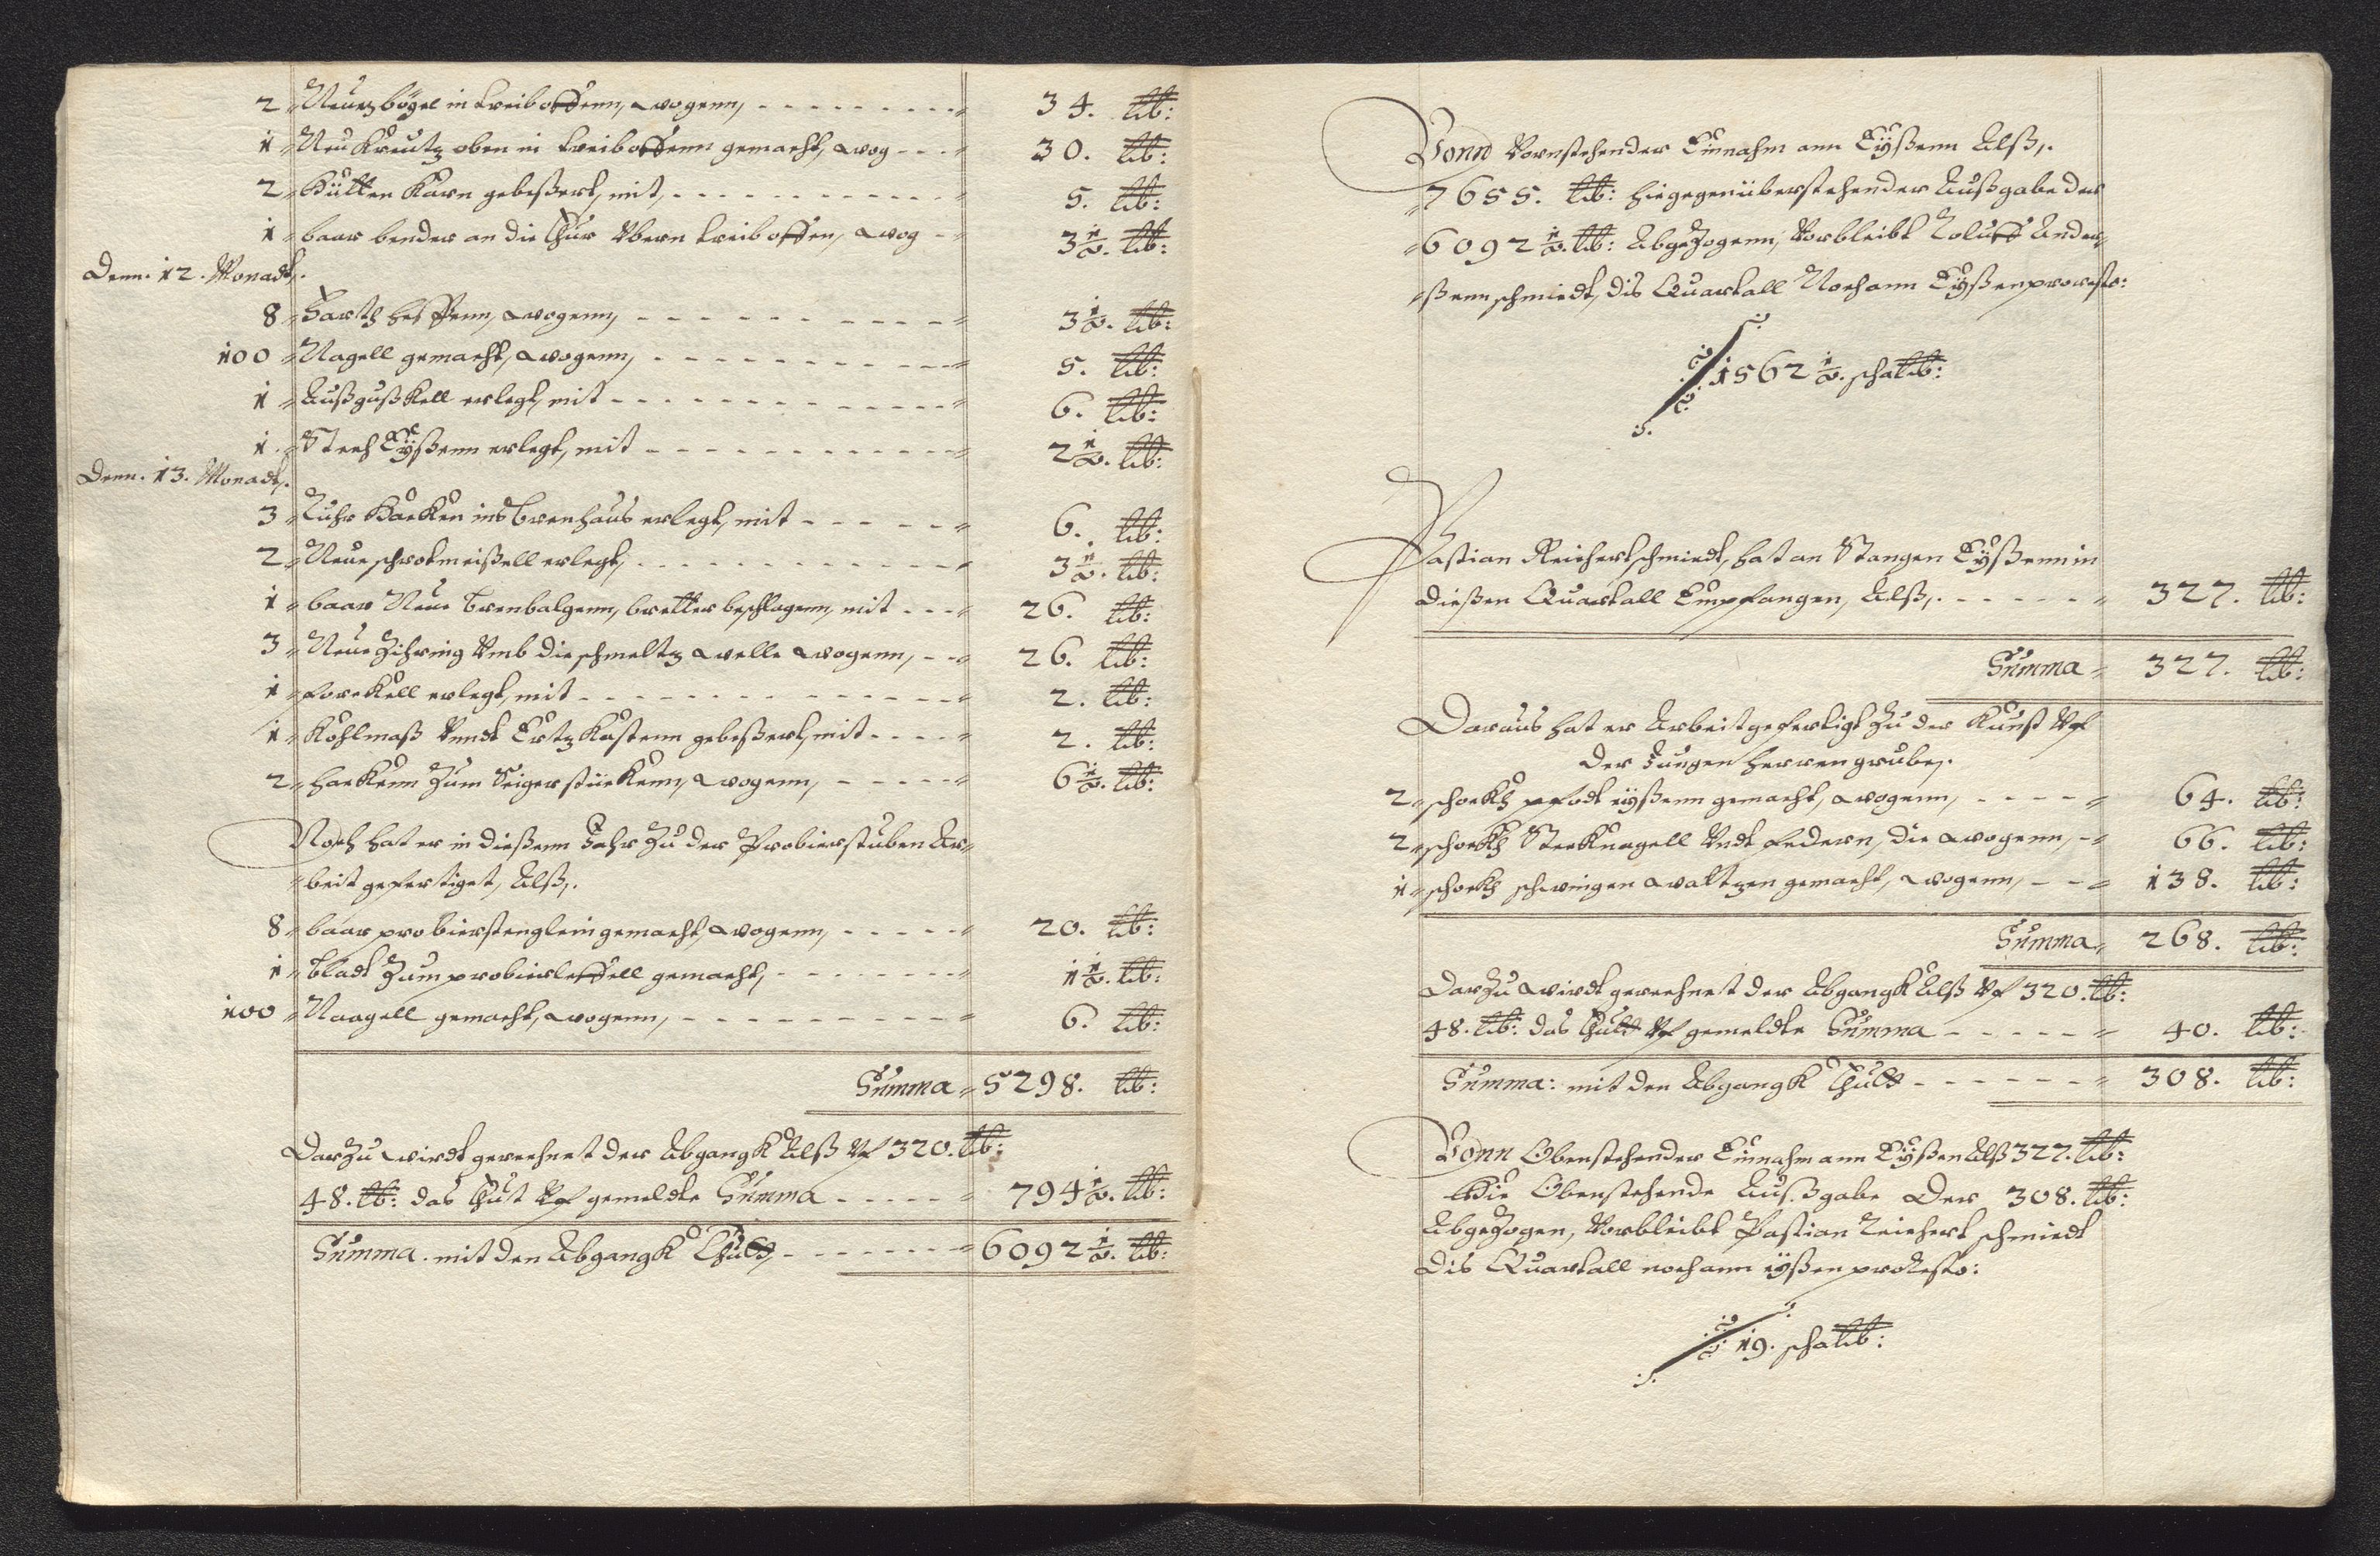 2 Neue bögel in treiboffenn, wogenn, 34. lb:
1 Neu Kreutz oben in treiboffenn gemacht, wog 30. lb:
2 Hütten Karn gebeßert, mit, 5. lb:
1 baar bender an die Thür Vbern treiboffen, wog 3½. lb:
Denn. 12. Monadt,.
8 Hartz hefftenn, wogenn, 3½. lb:
100 Nagell gemacht, wogenn, 5. lb:
1 Außguß Kell erlegt, mit 6. lb:
1. Stech Eyßenn erlegt, mit 2½. lb:
Denn. 13. Monadt,.
3 Hacken ins brenhaus erlegt, mit 6. lb:
2 Neue schrotmeißell erlegt, 3½. lb:
1 baar Neue brenbalgenn, bretter beschlagenn, mit 26. lb:
3 Neue Zihring Vmb die schmeltz welle wogenn, 26. lb:
1 foreKell erlegt, mit 2. lb:
1 Kohlmaß Vnndt Ertz Kastenn gebeßert, mit 2. lb:
2 hackenn Zum Seigerstückenn, wogenn, 6½. lb:
Noch hat er in dießenn Jahr Zu der Probierstuben Ar=
beit gefertiget, Alß,.
8 baar probierstenglein gemacht, wogenn, 20. lb:
1 bladt Zum probierleffell gemacht, 1½. lb:
100 Naagell gemacht, wogenn, 6. lb:
Summa 5298. lb:
DarZu wirdt gerechnet der Abgangk Alß Vf 320. lb:
48. lb: das Thut Vf gemeldte Summa 794½. lb:
Summa. mit den Abgangk Thutt, 6092½. lb:
Vonn Vornstehender Einnahm ann Eyßenn Alß,.
7655. lb: hiegegenüberstehender Außgabe der
6092½. lb: AbgeZogenn, Vorbleibt Roluff Ander,
ßenn schmiedt, dis Quartall Noch ann Eyßen
1562½. lb:
Pastian Reichert schmiedt, hat an Stangen Eyßenn in
dießen Quartall Empfangen, Alß,. 327. lb:
Summa 327. lb:
Daraus hat er Arbeit gefertigt Zu der Kunst Vf
der Jungen herren grube,.
2 schockh eyßenn gemacht, wogenn, 64. lb:
2 schockh StecKnagell Vndt federn, die wogenn, 66. lb:
1 schockh schwingen waltzen gemacht, wogenn, 138. lb:
Summa 268. lb:
DarZu wirdt gerechnet der Abgangk Alß Vf 320. lb:
48. lb: das Thutt Vf gemeldte Summa 40. lb:
Summa: mit den Abgangk Thutt 308. lb:
Vonn Obenstehender Einnahm ann Eyßen Alß 327. lb:
Die Obenstehende Außgabe Der 308. lb:
AbgeZogen, Vorbleibt Pastian Reichert schmiedt
Dis Quartall noch ann eyßen
19. lb: